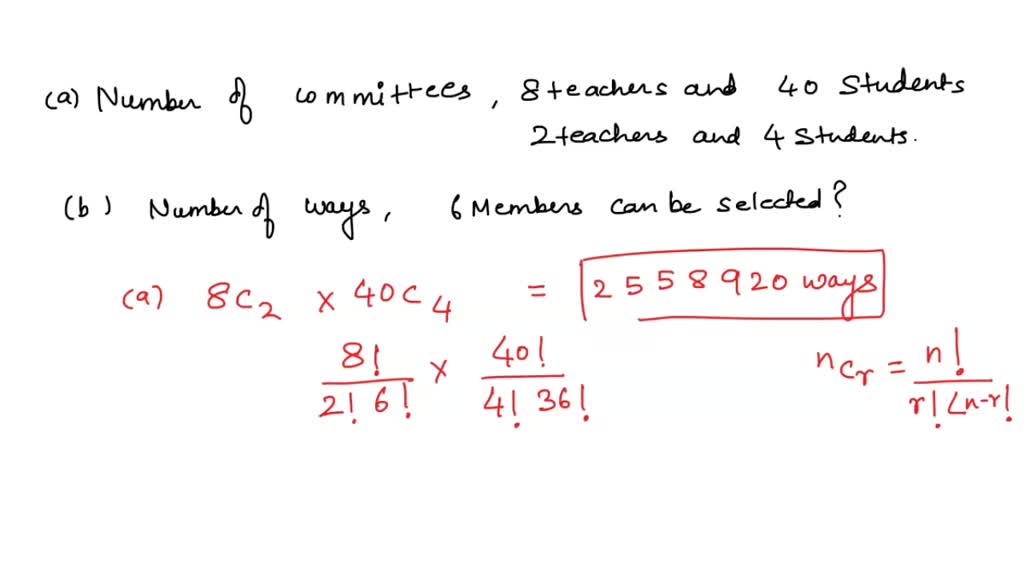 (a) Number of committees, 8 teachers and 40 Students
2 teachers and 4 Students.
(b) Number of ways, 6 Members can be selected?
(a) 8C₂ × 40C₄ = 2558920 ways
8!/2! 6! × 40!/4! 36!
nCr = n!/r! (n-r!